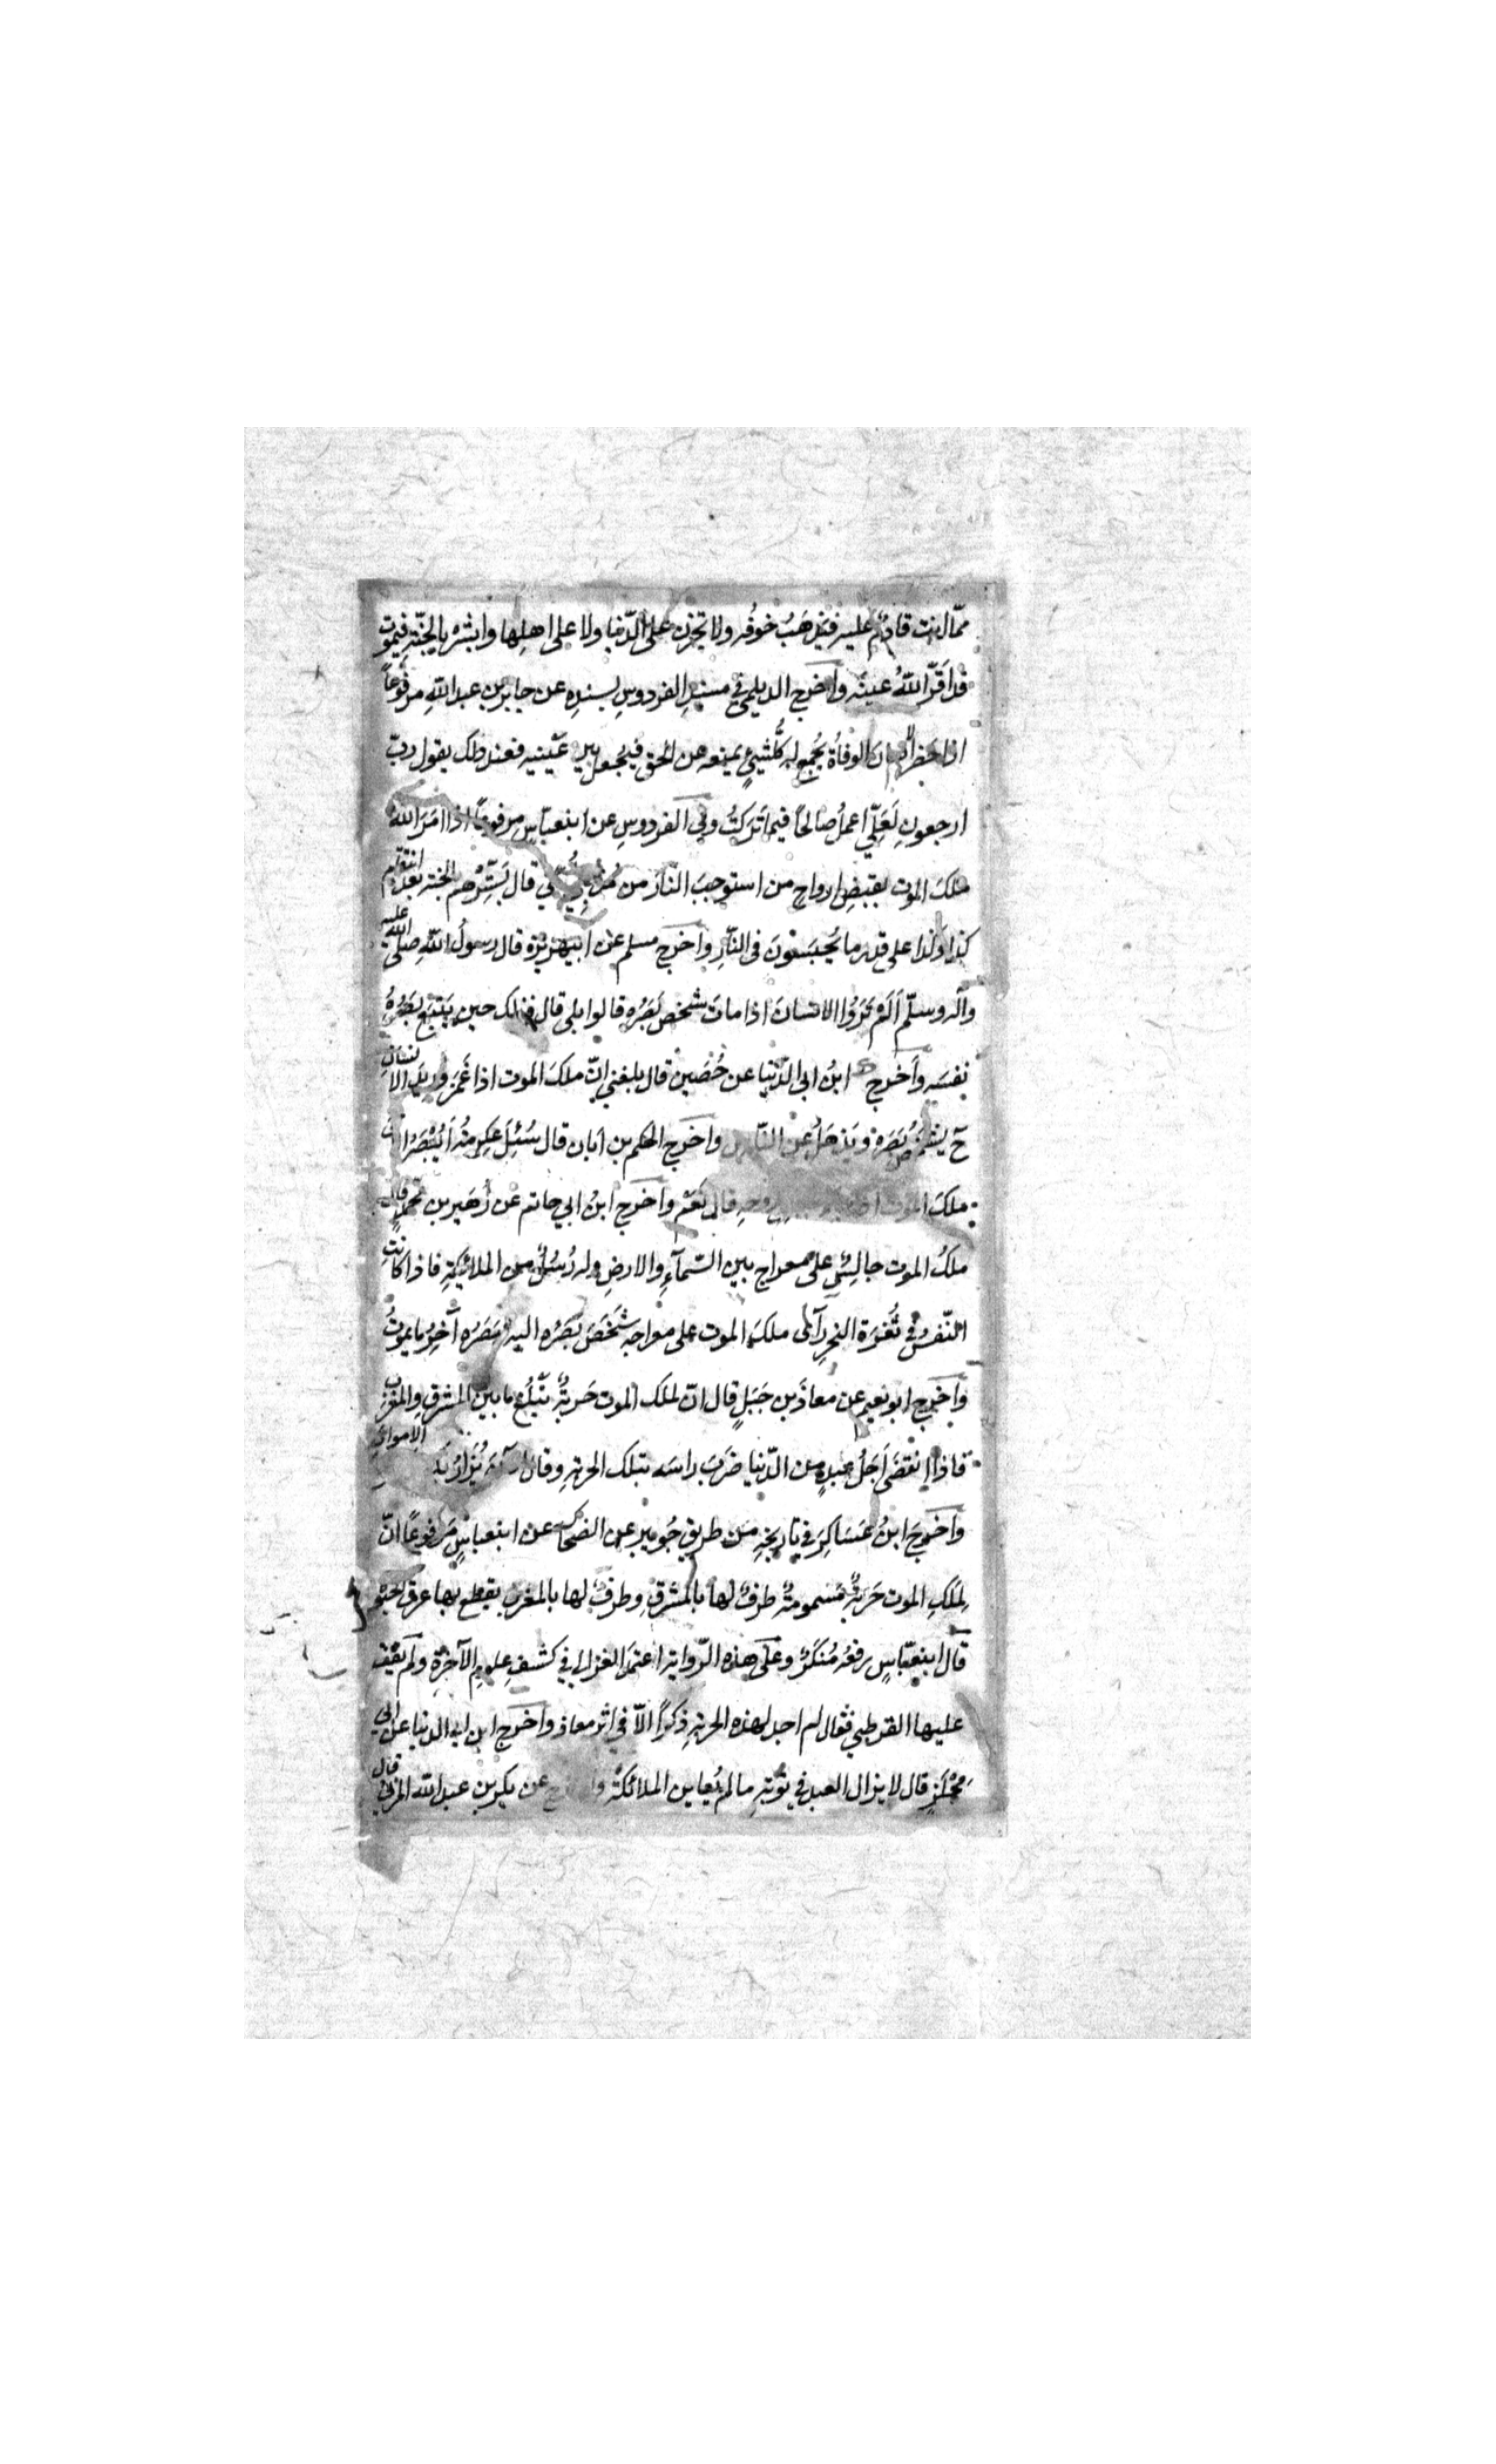 ممّا انت قادم عليه فيذهب خوفه ولا تحزن على الدّنيا ولا على اهلها وابشر بالجنّة فيموت
قد اَقَرّ اللهُ عينه واَخرج الديلمي في مسندِ الفردوسِ بسندِه عن جابر بن عبد اللهِ مرفوعاً
اذا حضر الانسان الوفاة يُجمع له كُلُّ شيئٍ يمنعه عن الحق فيُجعل بين عَينيه فعند ذلك يقول ربّ
ارجعونِ لَعَلّي اعملُ صالحًا فيما تَرَكتُ وفي الفردوسِ عن ابنعبّاسٍ مرفوعًا اذا امَرَ اللهُ
ملكَ الموت بقبضِ ارواحِ من استوجبَ النّارَ من قال بَشِّرْهم الجنة بعد انتقام
كذا وكذا على قدر ما يُحبَسُونَ في النّارِ واَخرج مسلم عن ابيهريرة قال رسولُ اللهِ صلى الله عليه
وآله وسلّم اَلَم تَرَوُا الانسانَ اذا ماتَ شخص بَصَرُه قالوا بلى قال فذلك حين يَتبَع بَصَرُهُ
نفسَه واَخرج ابنُ ابي الدّنيا عن حُصَين قال بلغني انّ ملكَ الموت اذا غَمَزَ وريدَ الانسانِ
ح يشخصُ بَصَرَه ويَذهَلُ عن النّاس واَخرج الحكم بن ابان قال سُئِلَ عِكرمةُ اَيُبْصَرُ
ملكَ الموت روحه قال نَعَم واَخرج ابنُ ابي حاتم عن زُهَير بن محمّدٍ قال
ملكُ الموت جالسٌ على معراج بين السّمآءِ والارضِ وله رُسُلٌ من الملائكةِ فاذا كانت
النّفسُ في ثُغرَة النحرِ رآى ملكَ الموت على معراجه شَخَصَ بَصَرُه اليه بَصَرُه آخِرُ ما يموتُ
واَخرج ابو نعيم عن معاذَ بن جَبَلٍ قال انّ لملك الموت حَربةً تَبْلُغ ما بين المشرقِ والمغربِ
فاذا انقضَى اَجَلُ عبدٍ من الدّنيا ضَرَبَ راسَه بتلك الحربةِ وقال الآن يُزارُ بكَ الاموات
واَخرجَ ابنُ عَسَاكِرَ في تاريخِهِ من طريق جُويبر عن الضحاك عن ابنعباسٍ مَرفوعًا انّ
لِمَلَكِ الموت حَربةً مَسمومةً طرفٌ لها بالمشرقِ وطرفٌ لها بالمغربِ يقطع بها عرق الحيوة
قال ابنعبّاسٍ رفعُه مُنكَرٌ وعَلَى هذه الرّواية اعتمد الغزالي في كشفِ علومِ الآخرةِ ولَم يَقِف
عليها القرطبي فقال لم اجد لهذه الحربةِ ذكرًا الّا في اثر معاذ واَخرج ابن ابي الدنيا عن ابي
مِجْلَزٍ قال لا يزال العبد في توبةٍ ما لم يُعاين الملائكةَ واخرج عن بكر بن عبد الله المزني قال